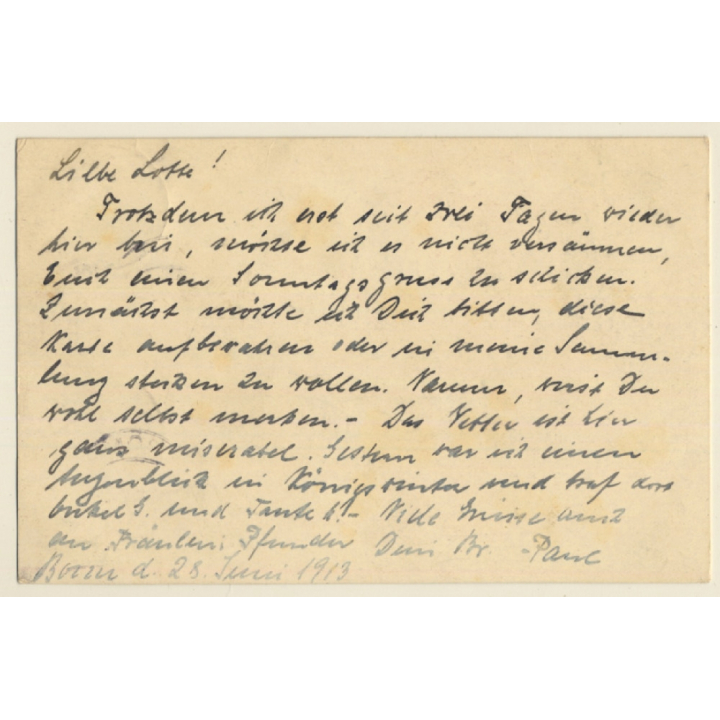 Liebe Lotte!
Trotzdem ich erst seit zwei Tagen wieder
hier bin, möchte ich es nicht versäumen,
Euch einen Sonntagsgruss zu schicken.
Zunächst möchte ich Dich bitten, diese
Karte aufbewahren oder in meine Samm-
lung stecken zu wollen. Warum, wirst Du
wohl selbst merken. - Das Wetter ist hier
ganz miserabel. Gestern war ich einen
Augenblick in Königswinter und traf dort
Onkel G. und Tante L. - Viele Grüsse auch
an Fräulein Pfunder Dein Br. - Paul
Bonn d. 28. Juni 1913